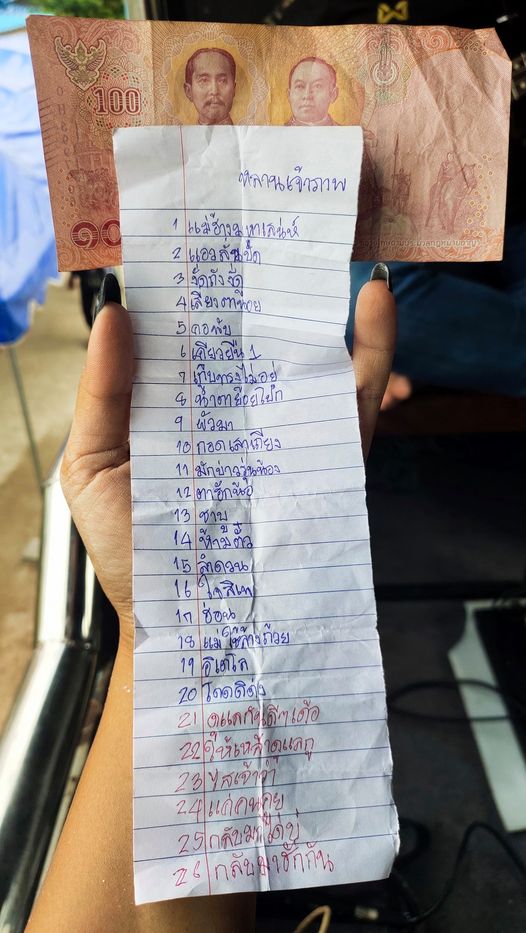 100
หลานเจ้าภาพ
1 แม่ฮ้างมหาเสน่ห์
2 แอวลั่นปั๊ด
3 งัดถั่งงัด
4 เสียงตาน้อย
5 คอพับ
6 เดี่ยวยืน 1
7 เก็บทรงไม่อยู่
8 น้ำตาย้อยโป๊ก
9 ผัวมา
10 กอดเสาเถียง
11 มักบ่าววุ่นน้อง
12 ตาฮักน้อ
13 ซาบ
14 ห้ามตั๋ว
15 ลำดวน
16 ใจสิเพ
17 ซ่อน
18 แม่ใช้ล้างถ้วย
19 อีเตโต
20 โดดดิด่ง
21 ดูแลกันดีๆเด้อ
22 ให้เหล้าดูแลกู
23 ไสเจ้าว่า
24 แก่คนคุย
25 กลับมาได้บ่
26 กลับมาฮักกัน